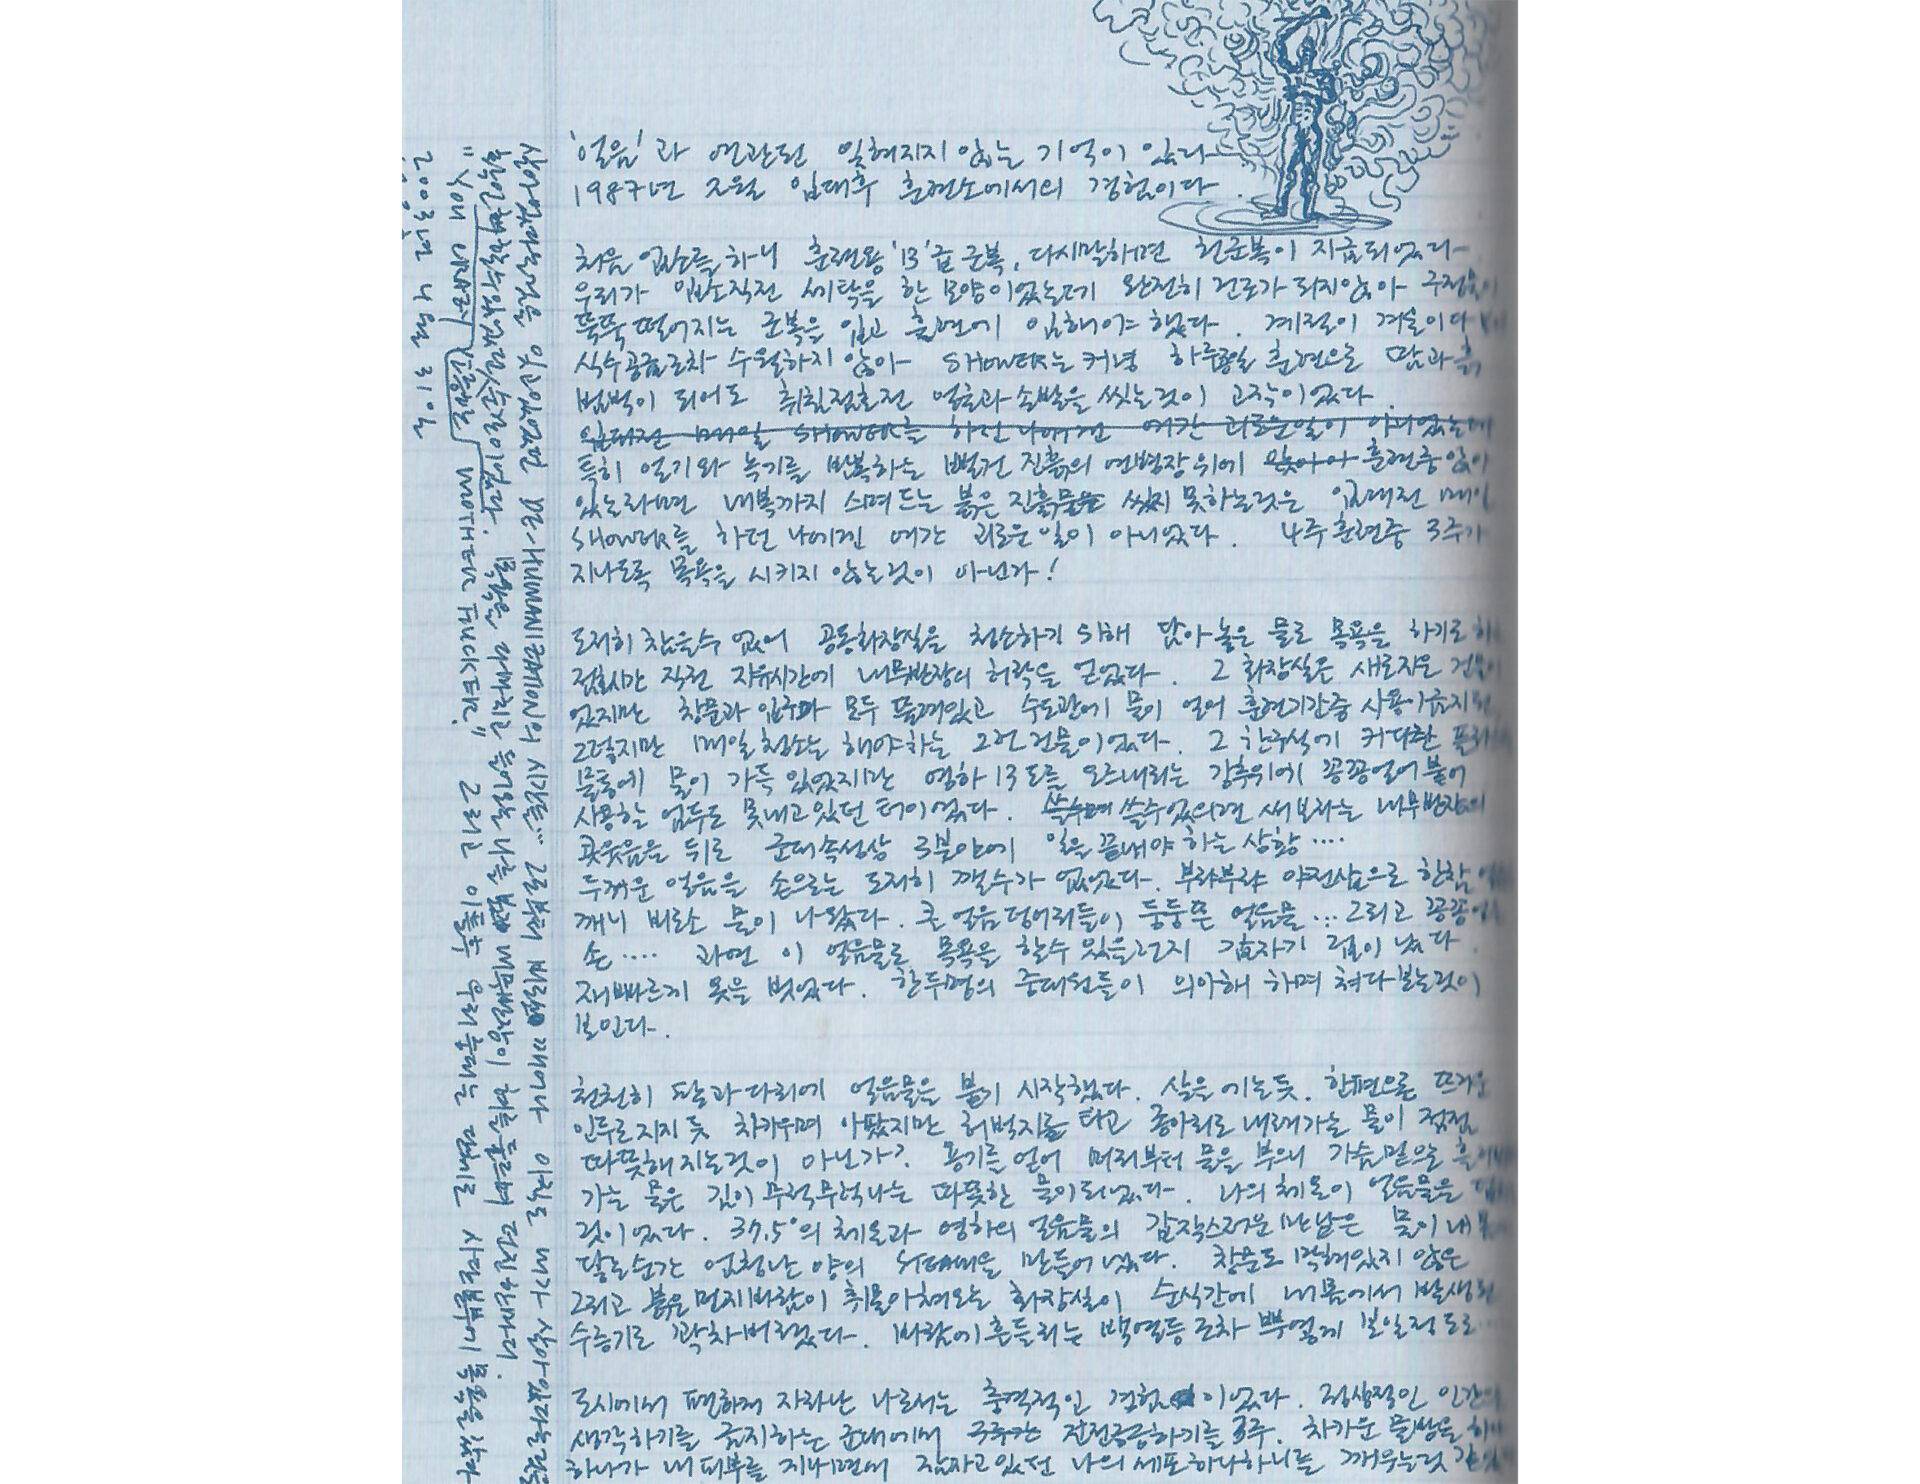 '얼음'과 연관된 잊혀지지 않는 기억이 있다
1987년 2월 입대후 훈련소에서의 경험이다.
처음 입소를 하니 훈련용 '13'급 군복, 다시말하면 헌군복이 지급되었다
우리가 입소직전 세탁을 한 모양이었는데 완전히 건조가 되지않아
뚝뚝 떨어지는 군복을 입고 훈련에 임해야 했다. 계절이 겨울이다
식수공급조차 수월하지 않아 SHOWER는 커녕 하루종일 훈련으로 땀과 흙
범벅이 되어도 취침점호전 얼굴과 손발을 씻는것이 고작이었다.
입대전 매일 SHOWER를 하던 나에겐 여간 괴로운일이 아니었는데
특히 얼기와 녹기를 반복하는 뻘건 진흙의 연병장위에 훈련중
있노라면 내복까지 스며드는 붉은 진흙물을 씻지 못하는것은 입대전 매일
SHOWER를 하던 나에겐 여간 괴로운일이 아니었다. 4주훈련중 3주가
지나도록 목욕을 시키지 않는것이 아닌가!
도저히 참을수 없어 공동화장실을 청소하기 위해 담아놓은 물로 목욕을 하기로
점호시간 직전 자유시간에 내무반장의 허락을 얻었다. 그 화장실은 새로지은
었지만 창문과 입구마 모두 뚫려있고 수도관에 물이 얼어 훈련기간중 사용이금지
그렇지만 매일 청소는 해야하는 그런 건물이었다. 그 한구석에 커다란
물통에 물이 가득 있었지만 영하 13도를 오르내리는 강추위에 꽁꽁얼어붙어
사용할 엄두도 못내고있던 터이었다. 쓸수있으면 써보라는 내무반장의
코웃음을 뒤로 군대속성상 3분안에 일을 끝내야 하는 상황....
두꺼운 얼음을 손으로는 도저히 깰수가 없었다. 부랴부랴 야전삽으로 한참
깨니 비로소 물이 나왔다. 큰 얼음덩어리들이 둥둥뜬 얼음물... 그리고 꽁꽁
손.... 과연 이 얼음물로 목욕을 할수있을런지 갑자기 겁이 났다.
재빠르게 옷을 벗었다. 한두명의 중대원들이 의아해 하며 쳐다보는것이
보인다.
천천히 팔과다리에 얼음물을 붓기 시작했다. 살을 에는듯, 한편으론 뜨거운
인두로지지듯 차가우며 아팠지만 허벅지를 타고 종아리로 내려가는 물이 점점
따뜻해지는것이 아닌가? 용기를 얻어 머리부터 물을 부으니 가슴밑으로
가는 물은 김이 무럭무럭나는 따뜻한 물이되었다. 나의 체온이 얼음물을
것이었다. 37.5°의 체온과 영하의 얼음물의 갑작스러운 만남은 물이 내
닿는순간 엄청난 양의 STEAM을 만들어 냈다. 창문도 막혀있지 않은
그리고 붉은 먼지바람이 휘몰아쳐오는 화장실이 순식간에 내몸에서 발생된
수증기로 꽉차버렸다. 바람에 흔들리는 백열등조차 뿌옇게 보일정도로
도시에서 편하게 자라난 나로서는 충격적인 경험이었다. 정상적인 인간의
생각하기를 금지하는 군대에서 전전긍긍하기를 3주. 차가운 물방울
하나가 내 피부를 지나면서 잠자고있던 나의 세포하나하나를 깨우는것
살아있다는것을 잊고있었던 DE-HUMANIZATION의 시간들... 그로부터 "깨어나 이제는 내가 살아있다는것을
목욕은 나머지 내무반장이
"YOU MOTHER FUCKER." 그리고 이틀후 우리중대는 단체로 사단본부에 목욕을
2003년 4월 31일